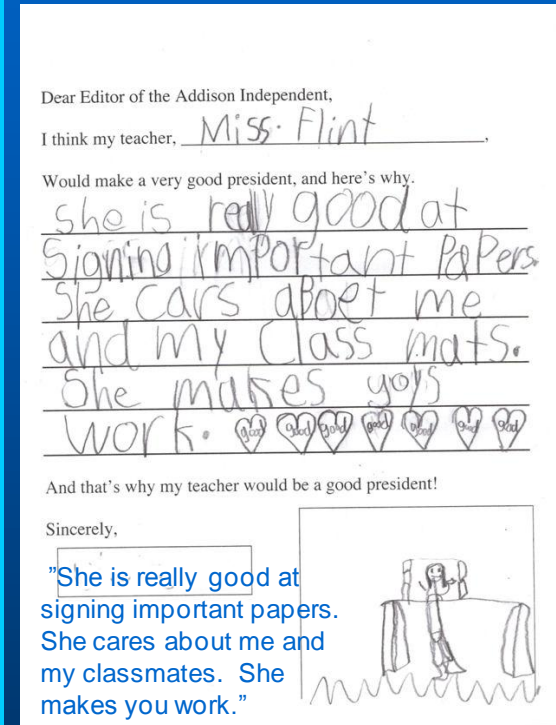 Dear Editor of the Addison Independent,
I think my teacher, Miss. Flint,
Would make a very good president, and here's why.
She is really good at
Signing important PaPers.
She cars aboet me
and my Class mats.
She makes yoys
work. good good good good good good good
And that's why my teacher would be a good president!
Sincerely,
"She is really good at
signing important papers.
She cares about me and
my classmates. She
makes you work."